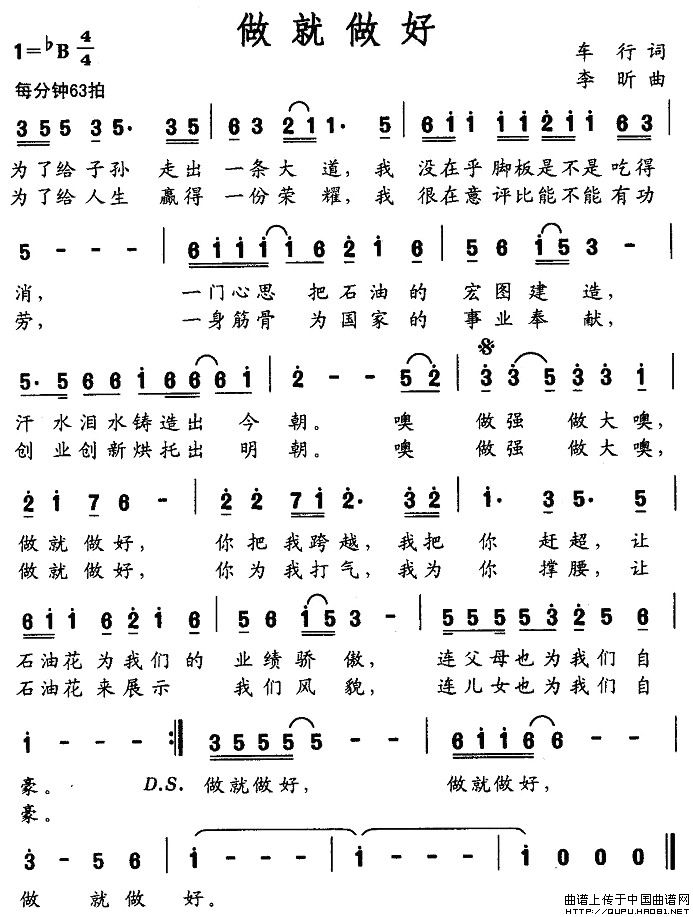 做就做好
1=♭B 4/4
车行词
每分钟63拍
李昕曲
3 5 5 5 3 5· 3 5 | 6 3 2 1 1 1· 5 | 6 1 1 1 1 2 1 1 6 3 |
为了给子孙 走出 一条大道，我 没在乎脚板是不是吃得
为了给人生 赢得 一份荣耀，我 很在意评比能不能有功
5 - - - | 6 1 1 1 1 6 2 1 6 | 5 6 1 5 3 - |
消， 一门心思 把石油的 宏图建造，
劳， 一身筋骨 为国家的 事业奉献，
5· 5 6 6 1 6 6 6 1 | 2 - - 5 2 | 3 3 5 3 3 1 |
汗水泪水铸造出 今朝。 噢 做强 做大噢，
创业创新烘托出 明朝。 噢 做强 做大噢，
2 1 7 6 - | 2 2 7 1 2· 3 2 | 1· 3 5· 5 |
做就做好， 你把我跨越，我把 你 赶超，让
做就做好， 你为我打气，我为 你 撑腰，让
6 1 1 6 2 1 6 | 5 6 1 5 3 - | 5 5 5 5 3 2 5 6 |
石油花为我们的 业绩骄傲， 连父母也为我们自
石油花来展示 我们风貌， 连儿女也为我们自
1 - - - :| 3 5 5 5 5 - - | 6 1 1 6 6 - - |
豪。 D.S. 做就做好， 做就做好，
豪。
3 - 5 6 | 1 - - - | 1 - - - | 1 0 0 0 ‖
做 就 做 好。
曲谱上传于中国曲谱网
HTTP://QUPU.HAO81.NET